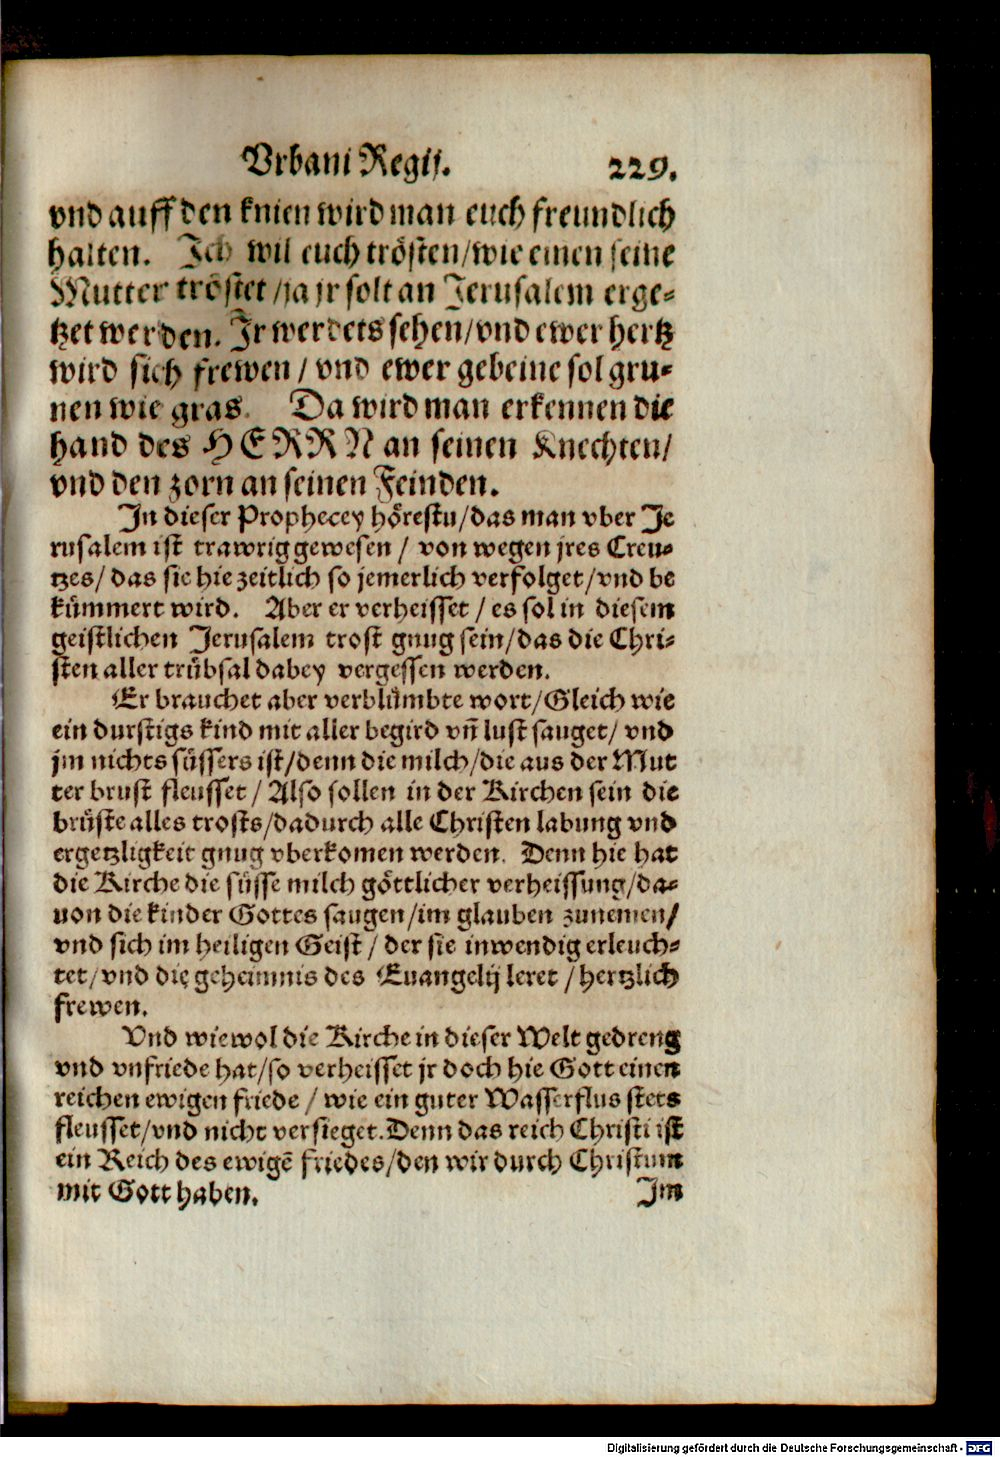 Vrbani Regij. 229.
vnd auff den knien wird man euch freundlich
halten. Ich wil euch trösten/wie einen seine
Mutter tröstet/ja jr solt an Jerusalem erge-
tzet werden. Ir werdets sehen/vnd ewer hertz
wird sich frewen/ vnd ewer gebeine sol gru-
nen wie gras. Da wird man erkennen die
hand des HERRN an seinen Knechten/
vnd den zorn an seinen Feinden.
In dieser Prophecey hörestu/das man vber Je
rusalem ist trawrig gewesen/ von wegen jres Creu-
tzes/ das sie hie zeitlich so jemerlich verfolget/vnd be
kümmert wird. Aber er verheisset/ es sol in diesem
geistlichen Jerusalem trost gnug sein/das die Chri-
sten aller trübsal dabey vergessen werden.
Er brauchet aber verblümbte wort/Gleich wie
ein durstigs kind mit aller begird vñ lust sauget/ vnd
jm nichts süssers ist/denn die milch/die aus der Mut
ter brust fleusset/ Also sollen in der Kirchen sein die
brüste alles trosts/dadurch alle Christen labung vnd
ergetzligkeit gnug vberkomen werden. Denn hie hat
die Kirche die süsse milch göttlicher verheissung/da-
uon die kinder Gottes saugen/im glauben zunemen/
vnd sich im heiligen Geist/ der sie inwendig erleuch-
tet/vnd die geheimnis des Euangelij leret/ hertzlich
frewen.
Vnd wiewol die Kirche in dieser Welt gedreng
vnd vnfriede hat/so verheisset jr doch hie Gott einen
reichen ewigen friede/ wie ein guter Wasserflus stets
fleusset/vnd nicht versieget. Denn das reich Christi ist
ein Reich des ewigẽ friedes/den wir durch Christum
mit Gott haben. Im
Digitalisierung gefördert durch die Deutsche Forschungsgemeinschaft - DFG